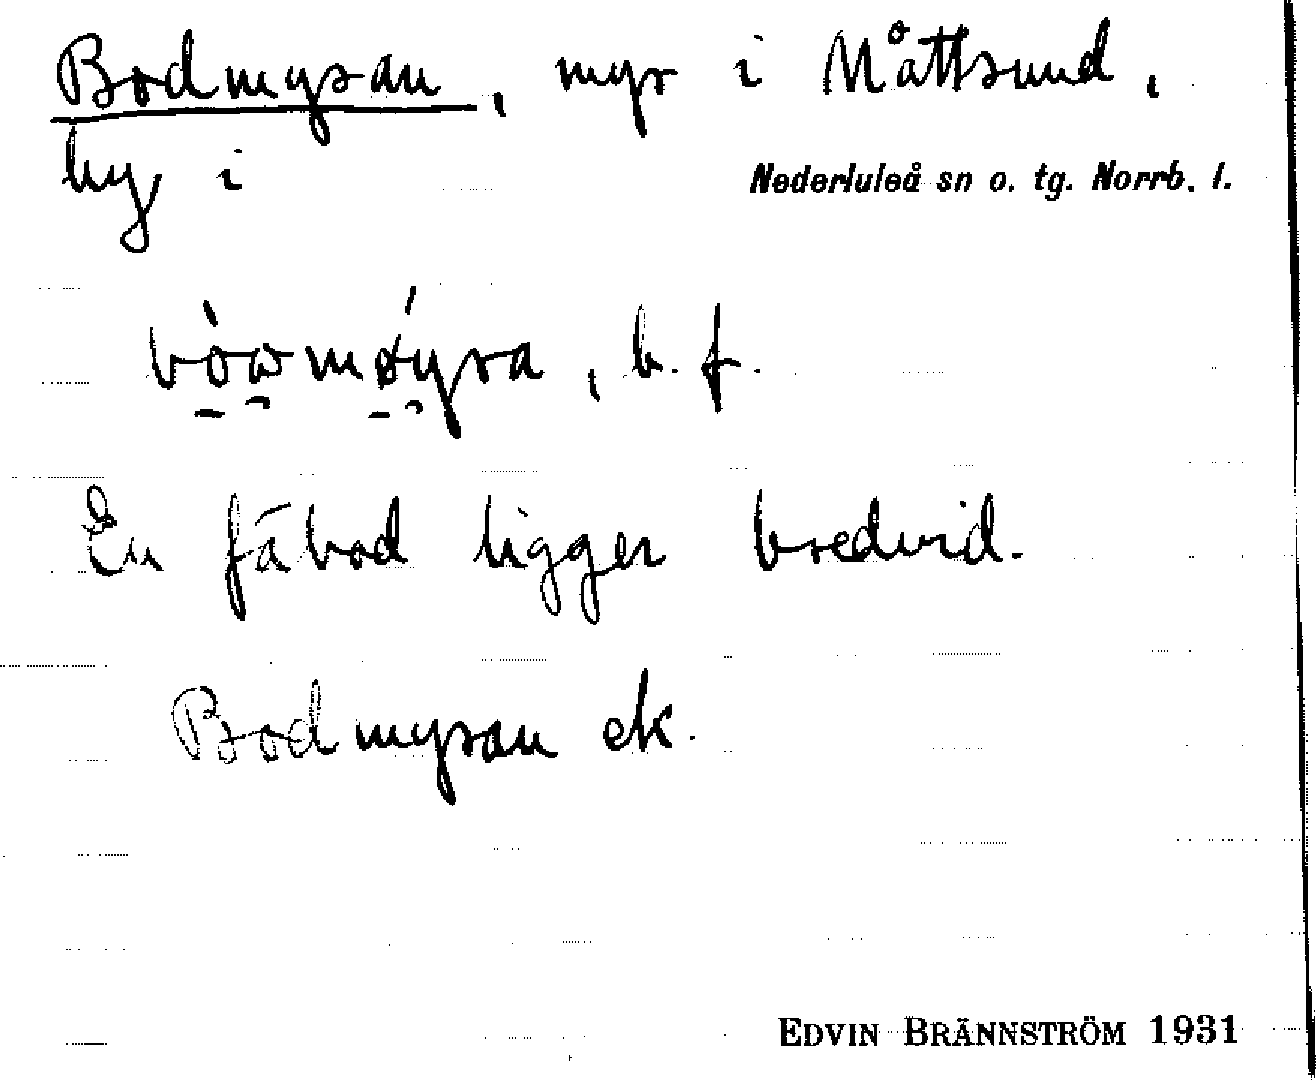 Bodmyran, myr i Måttsund,
by i Nederluleå sn o. tg. Norrb. l.
bòωmǿyra, b. f.
En fäbod ligger bredvid.
Bodmyran ek.
EDVIN BRÄNNSTRÖM 1931